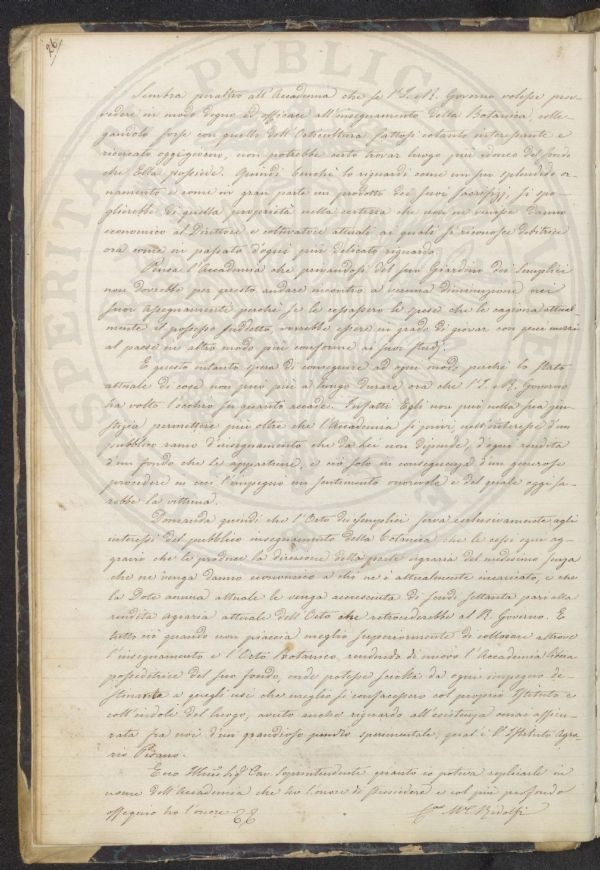 26/
Sembra peraltro all'Accademia che se l'I. e R. Governo volesse prov-
vedere in modo degno ed efficace all'insegnamento della Botanica, colle-
gandolo forse con quello dell'Orticultura fattosi cotanto interessante e
ricercato oggigiorno, non potrebbe certo trovar luogo più idoneo del fondo
che Ella possiede. Quindi benchè lo riguardi come un suo splendido or-
namento e come in gran parte un prodotto dei suoi sacrifizj, si spo-
glierebbe di quella proprietà nella certezza che non ne venisse danno
economico al Direttore e cultivatore attuali ai quali si riconosce debitrice
ora come in passato d'ogni più delicato riguardo.
Pensa l'Accademia che privandosi del suo Giardino dei Semplici
non dovrebbe per questo andare incontro a veruna diminuzione nei
suoi assegnamenti perchè se le cessassero le spese che le cagiona attual-
mente il possesso suddetto, verrebbe essere in grado di giovar con quei mezzi
al paese in altro modo più conforme ai suoi studj.
E questo intanto spera di conseguire ad ogni modo perchè lo stato
attuale di cose non può più a lungo durare ora che l'I. e R. Governo
ha volto l'occhio su quanto accade. Infatti Egli non può nella sua giu-
stizia permettere più oltre che l'Accademia si privi, nell'interesse d'un
pubblico ramo d'insegnamento che da lei non dipende, d'ogni rendita
d'un fondo che le appartiene, e ciò solo in conseguenza d'un generoso
procedere in cui l'impegnò un sentimento onorevole e del quale oggi sa-
rebbe la vittima.
Domanda quindi che l'Orto dei Semplici serva esclusivamente agli
interessi del pubblico insegnamento della Botanica che le cessi ogni ag-
gravio che le produce la direzione della parte agraria del medesimo senza
che ne venga danno economico a chi ne è attualmente incaricato, e che
la Dote annua attuale le venga accresciuta di scudi settanta pari alla
rendita agraria attuale dell'Orto che retrocederebbe al R. Governo. E
tutto ciò quando non piaccia meglio superiormente di collocare altrove
l'insegnamento e l'Orto Botanico, rendendo di nuovo l'Accademia libera
posseditrice del suo fondo, onde potesse sciolta da ogni impegno de-
stinarlo a quegli usi che meglio si confacessero col proprio Istituto e
coll'indole del luogo, avuto anche riguardo all'esistenza omai assicu-
rata fra noi d'un grandioso podere sperimentale, qual'è l'Istituto Agra-
rio Pisano.
Ecco Illmo Sig. Cav. Soprintendente quanto io poteva replicarle in
nome dell'Accademia che ho l'onore di Presiedere e col più profondo
ossequio ho l'onore
Ridolfi
SPERITAS PVBLICA